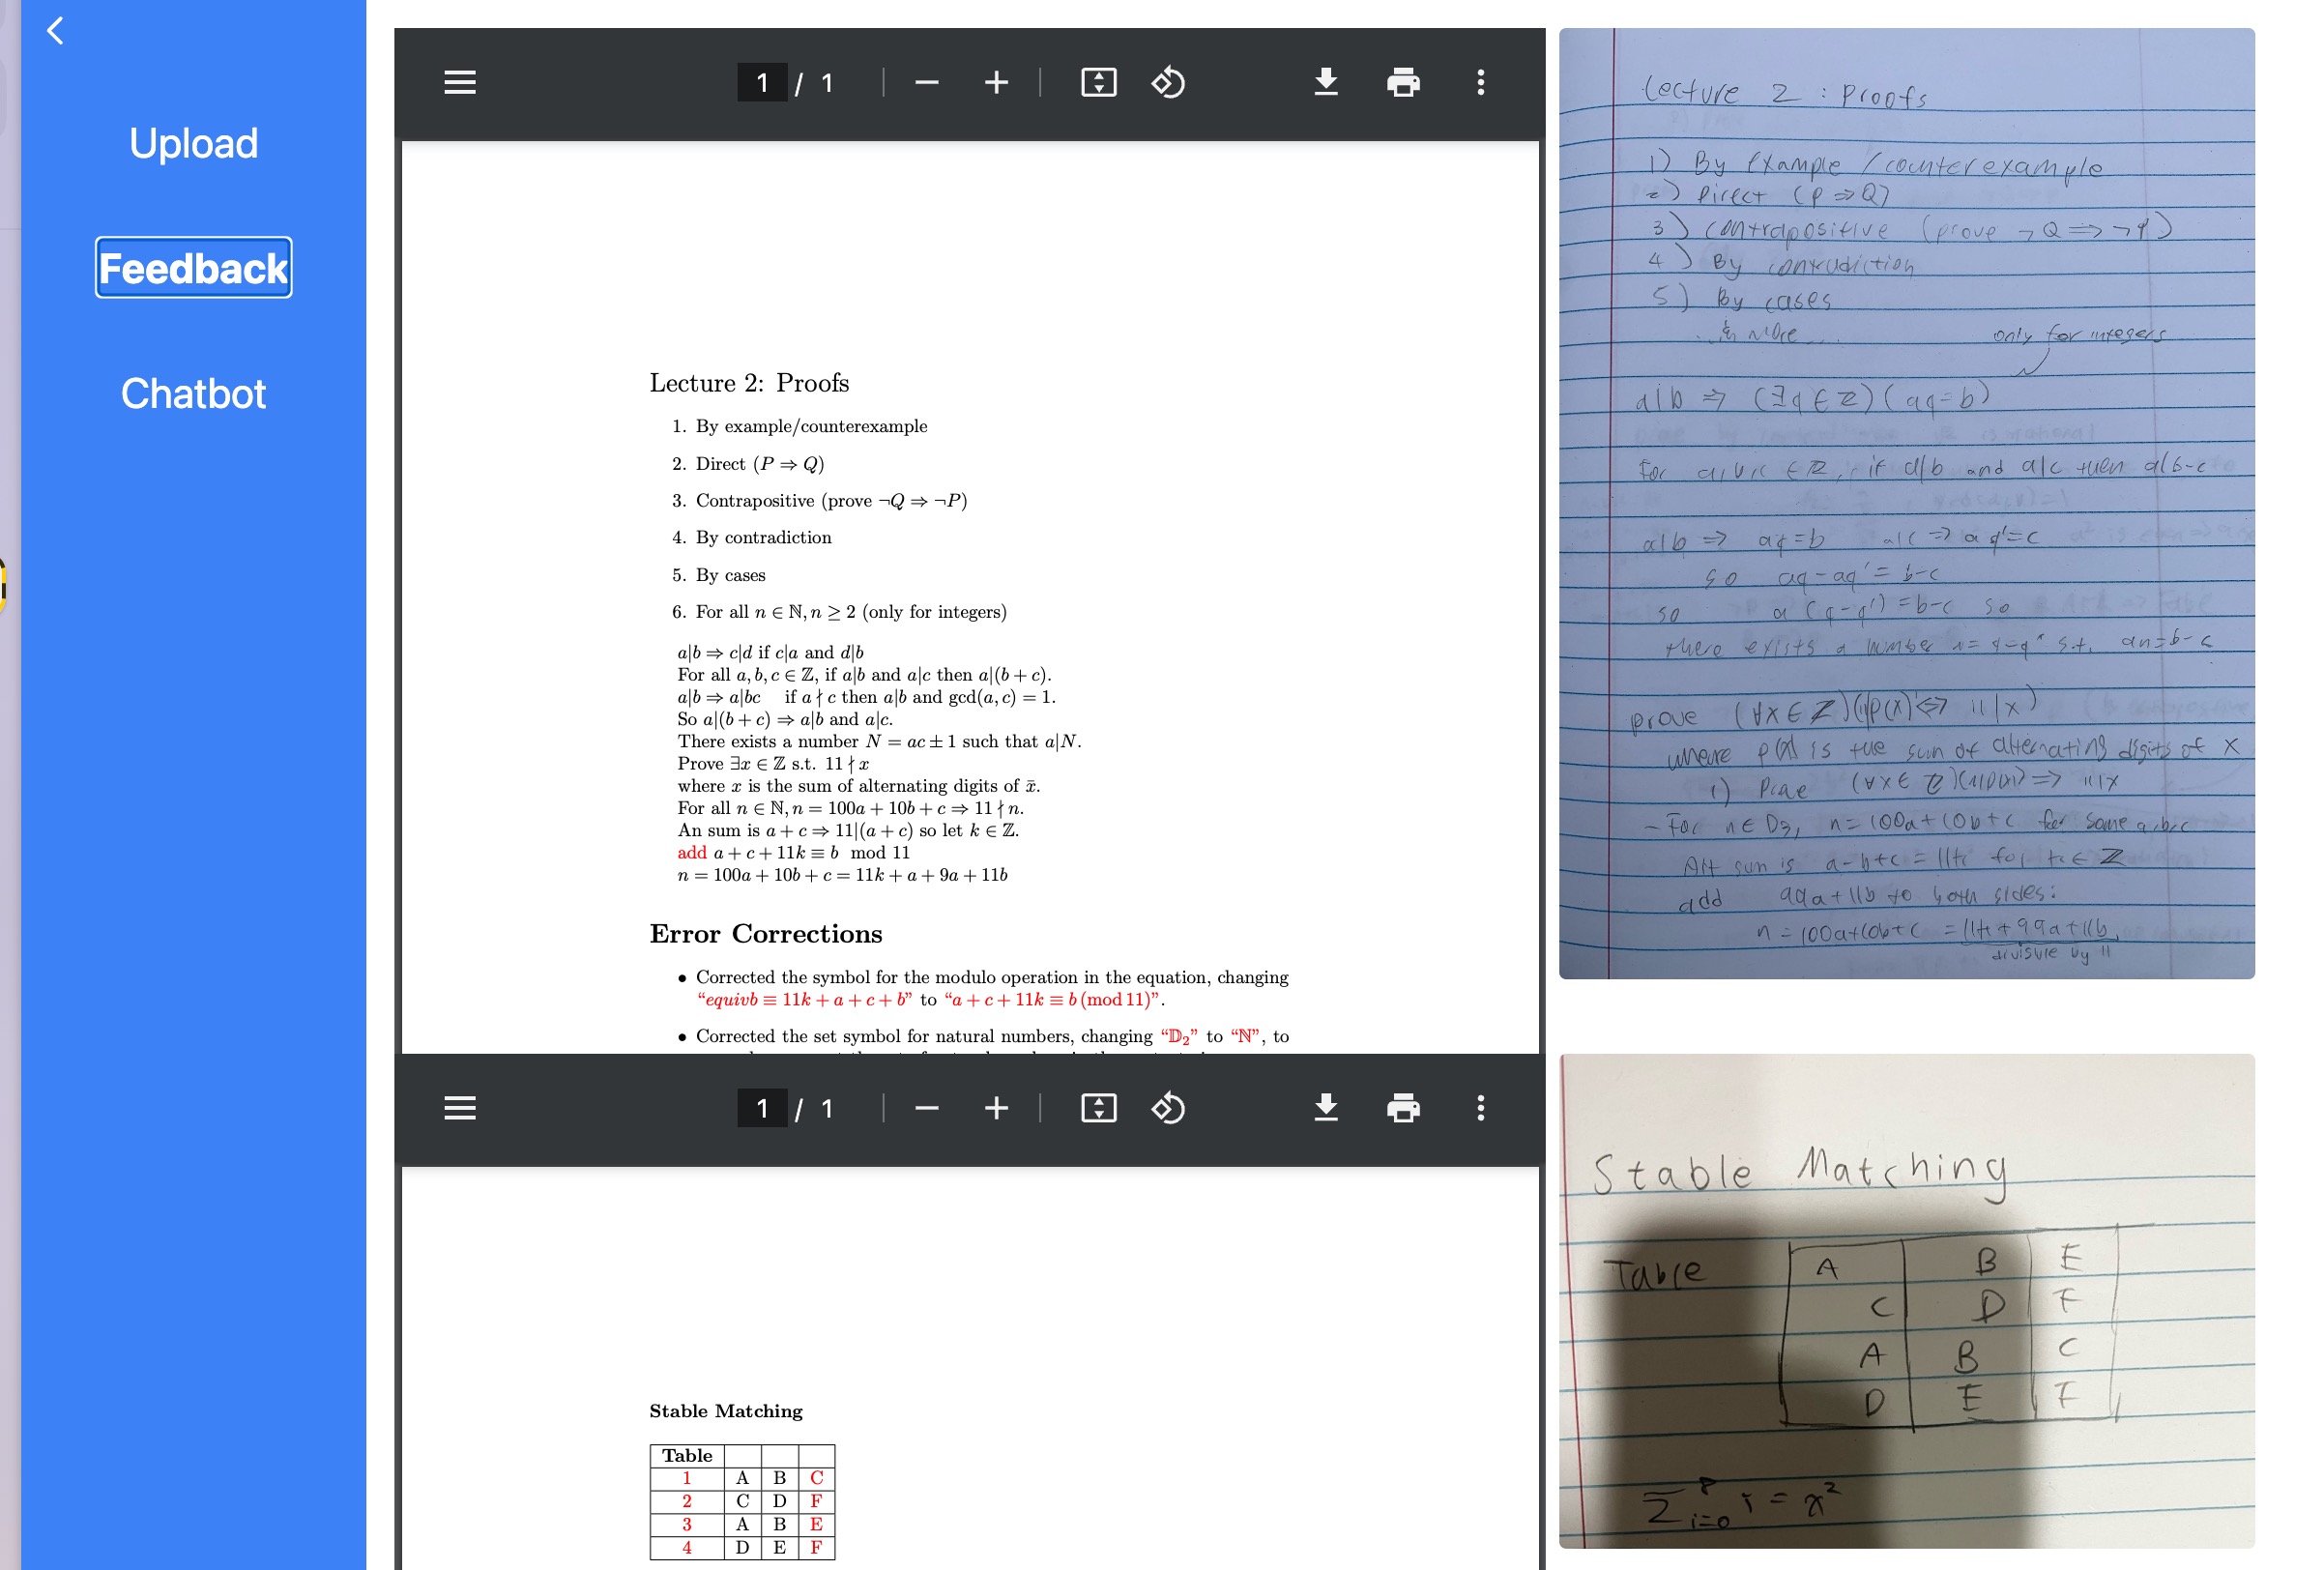 Upload
Feedback
Chatbot
1 / 1
Lecture 2: Proofs
1. By example/counterexample
2. Direct (P ⇒ Q)
3. Contrapositive (prove ¬Q ⇒ ¬P)
4. By contradiction
5. By cases
6. For all n ∈ ℕ, n ≥ 2 (only for integers)
a|b ⇒ c|d if c|a and d|b
For all a, b, c ∈ ℤ, if a|b and a|c then a|(b + c).
a|b ⇒ a|bc if a ∤ c then a|b and gcd(a, c) = 1.
So a|(b + c) ⇒ a|b and a|c.
There exists a number N = ac ± 1 such that a|N.
Prove ∃x ∈ ℤ s.t. 11 ∤ x
where x is the sum of alternating digits of x̄.
For all n ∈ ℕ, n = 100a + 10b + c ⇒ 11 ∤ n.
An sum is a + c ⇒ 11|(a + c) so let k ∈ ℤ.
add a + c + 11k ≡ b mod 11
n = 100a + 10b + c = 11k + a + 9a + 11b
Error Corrections
• Corrected the symbol for the modulo operation in the equation, changing
“equivb ≡ 11k + a + c + b” to “a + c + 11k ≡ b (mod 11)”.
• Corrected the set symbol for natural numbers, changing “𝔻₂” to “ℕ”, to
1 / 1
Stable Matching
Table
1 A B C
2 C D F
3 A B E
4 D E F
Lecture 2 : Proofs
1) By Example / counterexample
2) Direct (P ⇒ Q)
3) Contrapositive (prove ¬Q ⇒ ¬P)
4) By contradiction
5) By cases
..& more ....
only for integers
a|b ⇒ (∃q ∈ ℤ) (aq = b)
For a, b, c ∈ ℤ, if a|b and a|c then a|b-c
a|b ⇒ aq = b a|c ⇒ aq' = c
so aq - aq' = b-c
so a (q - q') = b-c so
there exists a number n = q-q' s.t. an = b-c
prove (∀x ∈ ℤ)(11|p(x) ⇔ 11|x)
where p(x) is the sum of alternating digits of x
1) Prove (∀x ∈ ℤ)(11|p(x) ⇒ 11|x
- For n ∈ D3, n = 100a + 10b + c for some a,b,c
Alt sum is a-b+c = 11k for k ∈ ℤ
add 99a + 11b to both sides:
n = 100a+10b+c = 11k + 99a + 11b
divisible by 11
Stable Matching
Table A B E
C D F
A B C
D E F